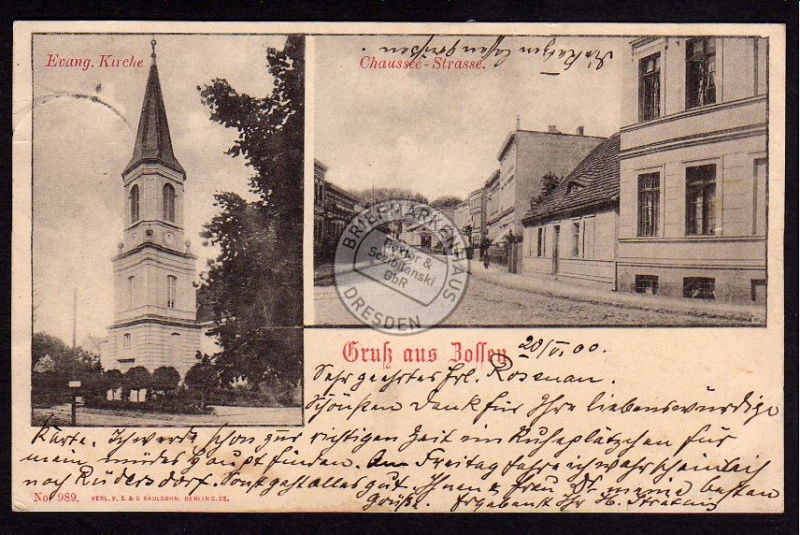 Evang. Kirche
Chaussee-Strasse.
BRIEFMARKENHAUS
Dexter &
Sehlianski
GbR
DRESDEN
Gruß aus Zossen
20/VI.00.
Sehr geehrtes Frl. Rosenau.
Schönsten Dank für Ihre liebenswürdige
Karte. Ich werde schon zur richtigen Zeit ein Ruheplätzchen für
mein müdes Haupt finden. Am Freitag fahre ich wahrscheinlich
nach Rüdersdorf. Sonst geht alles gut. Ihnen & Frau Dr. meine besten
Grüße. Ergebenst Ihr H.
No. 989. VERL. V. S. & G SAULSOHN. BERLIN C. 25.